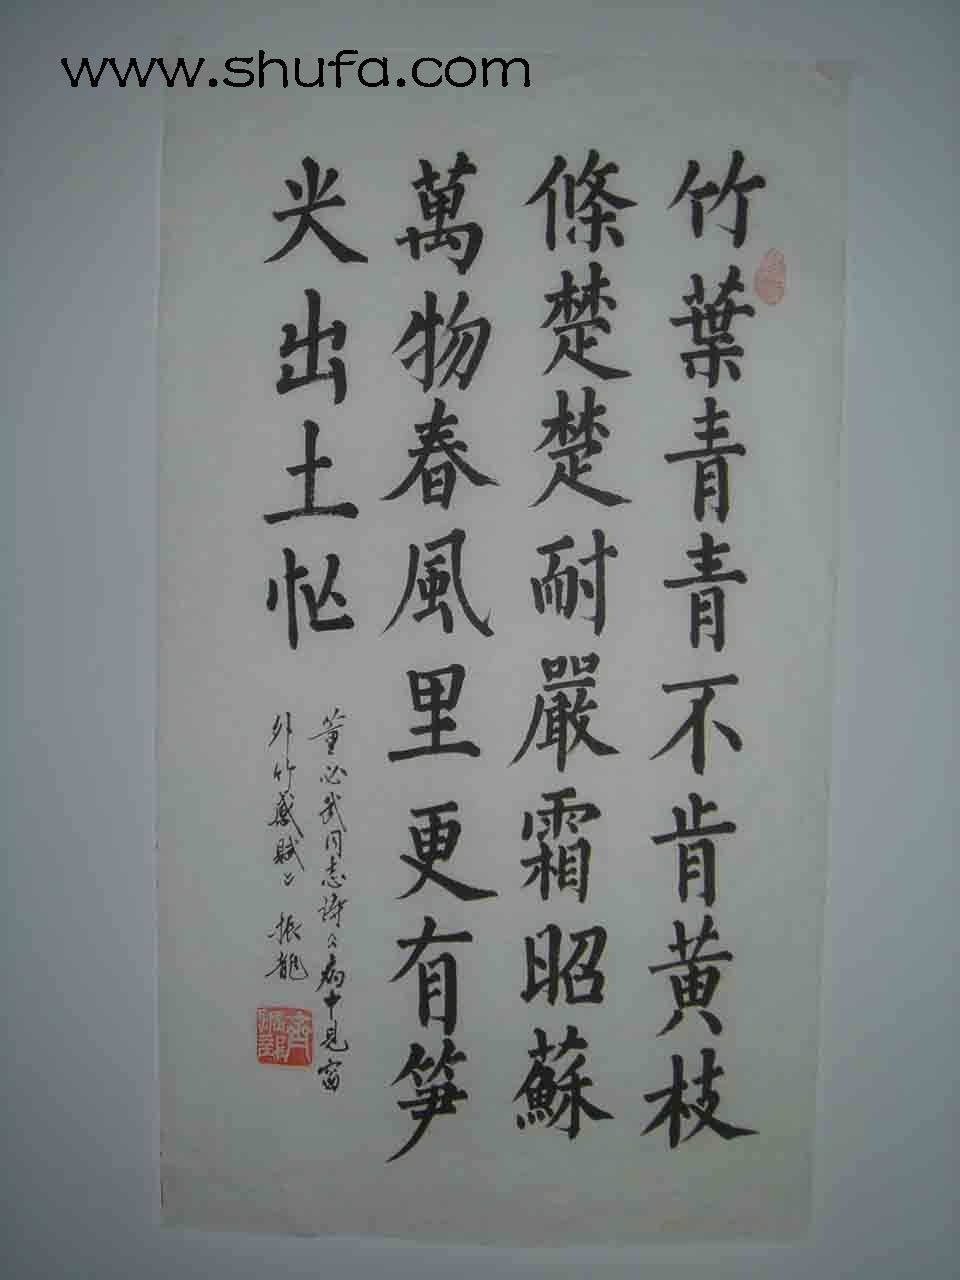 www.shufa.com
竹葉青青不肯黃枝
條楚楚耐嚴霜昭蘇
萬物春風里更有笋
尖出土忙
董必武同志詩病中見窗
外竹感賦 振龍